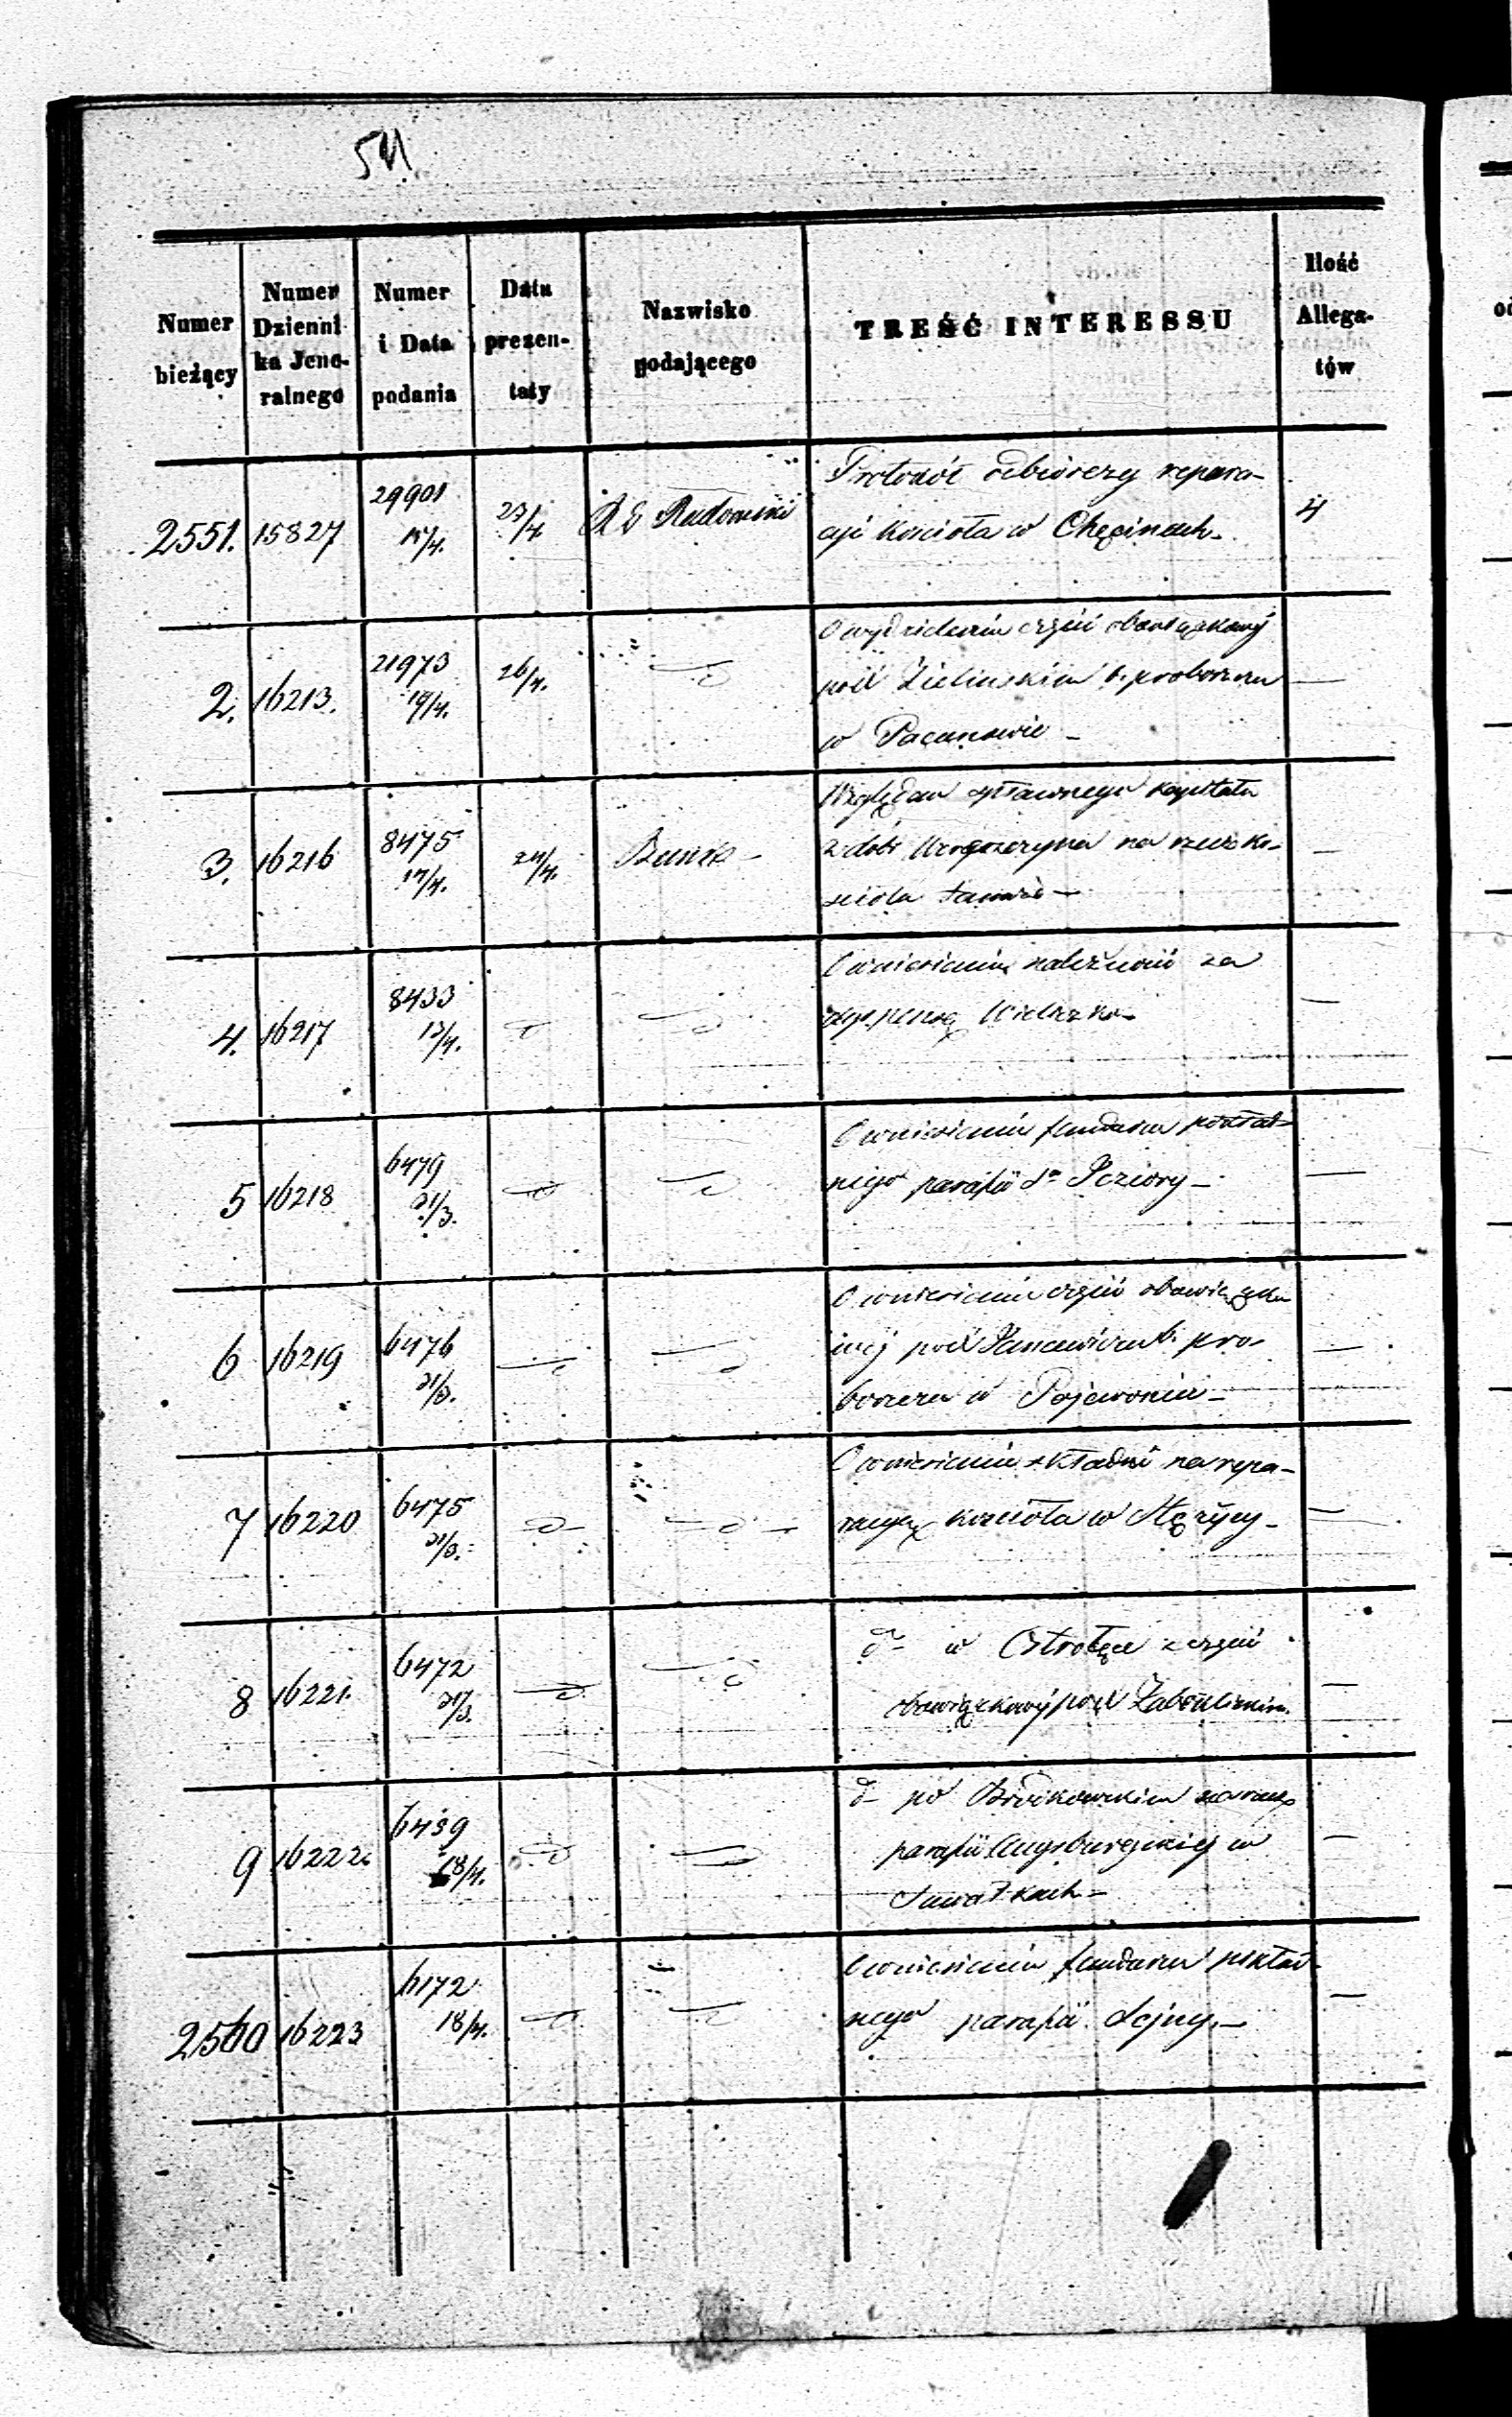 541.
Numer bieżący
Numer Dzienni ka Jene- ralnego
Numer i Data podania
Data prezen- taty
Nazwisko podającego
TREŚĆ INTERESSU
Ilość Allega- tów
2551. 15827 29901 15/4. 23/4 R G Radomski Protokół odbiorczy repera-
cyi kościoła w Chęcinach. 4
2. 16213. 21973 19/4. 26/4. O wydzielenie części obowiązkowej
po X Zielińskim b. proboszczu
w Pacanowie –
3. 16216 8475 17/4. 24/4. Bank – Względem spławnego kapitału
z dóbr na rzecz ko-
ścioła tamże –
4. 16217 8433 13/4. O wniesieniu należności za
Wieliczko –
5 16218 6479 31/3. O wniesieniu funduszu pokład-
nego parafii Jeziory –
6 16219 6476 31/3. O wniesieniu części obowiązko
wej po X b. pro-
boszczu w Pojewoniu –
7 16220 6475 31/3. O wniesieniu składki na repa-
racyę kościoła w Stężycy –
8 16221. 6472 31/3. dº w Ostrołęce z części
obowiązkowej po X
9 16222. 6439 18/4. d– po na rzecz
parafii Augsburgskiej w
Suwałkach –
2560 16223 6172 18/4. O wniesieniu funduszu pokład-
nego parafii Sejny. –